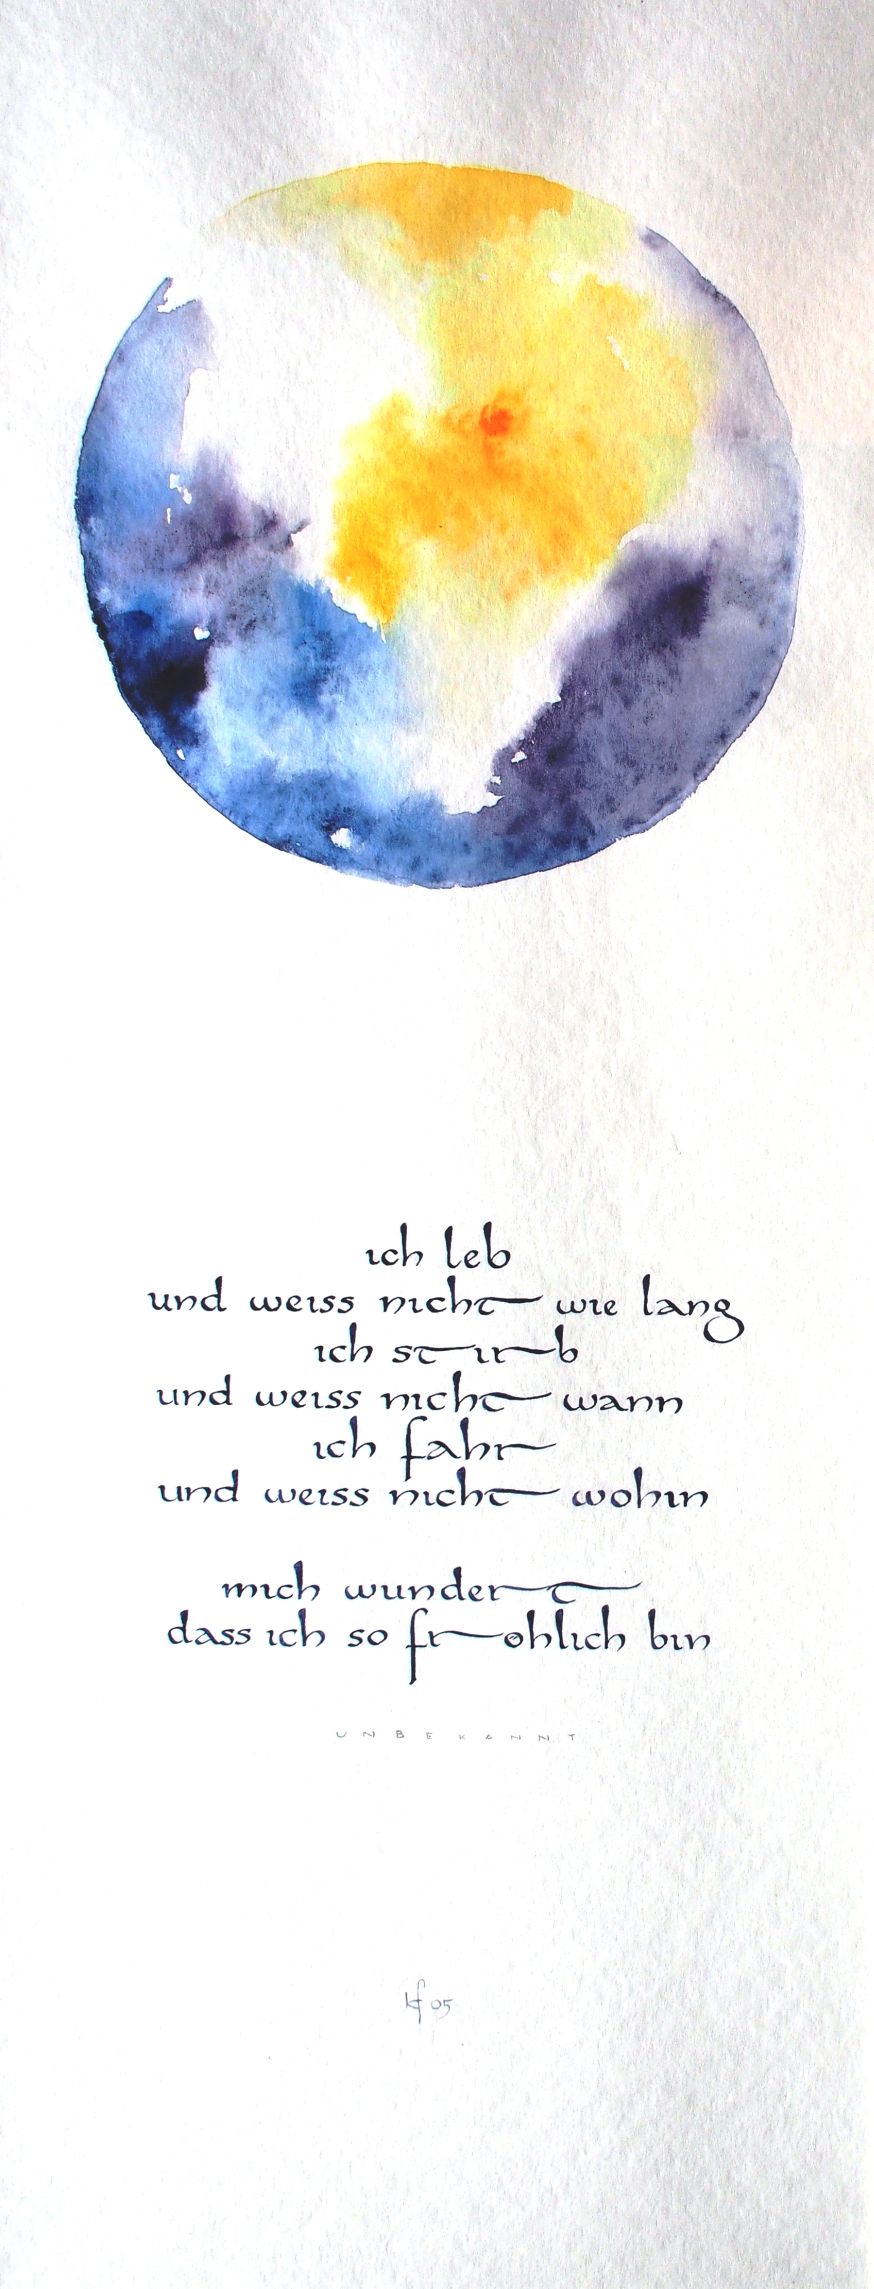 ich leb
und weiss nicht wie lang
ich stirb
und weiss nicht wann
ich fahr
und weiss nicht wohin
mich wundert
dass ich so frohlich bin
UNBEKANNT
kf 05